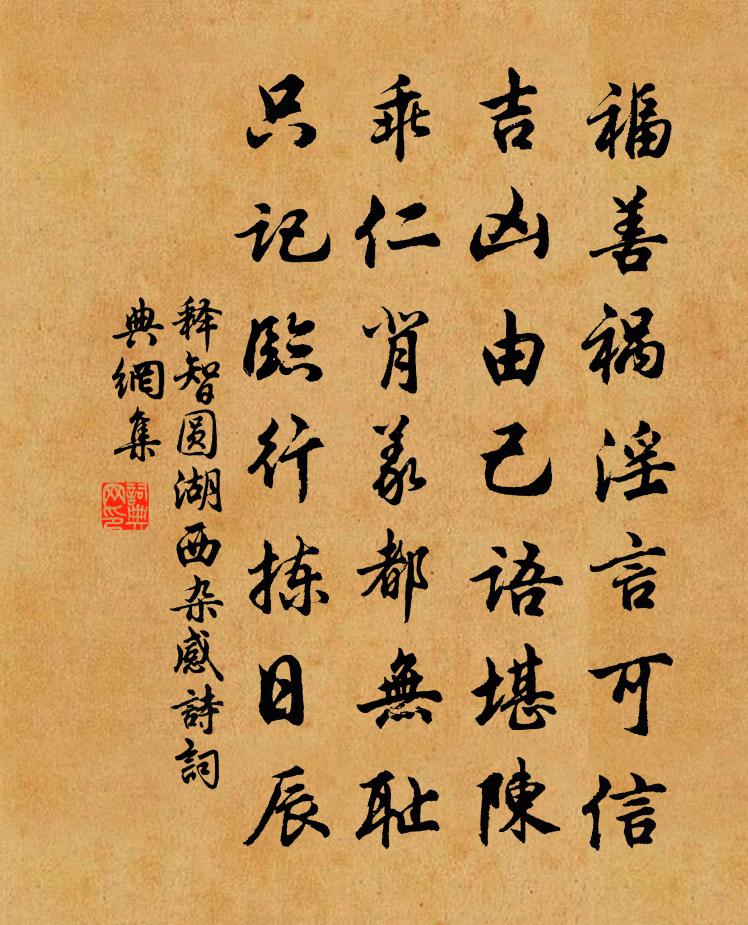 福善祸淫言可信
吉凶由己语堪陳
乖仁背义都無耻
只记臨行拣日辰
释智圆湖西杂感詩詞
典網集
詞典
网印